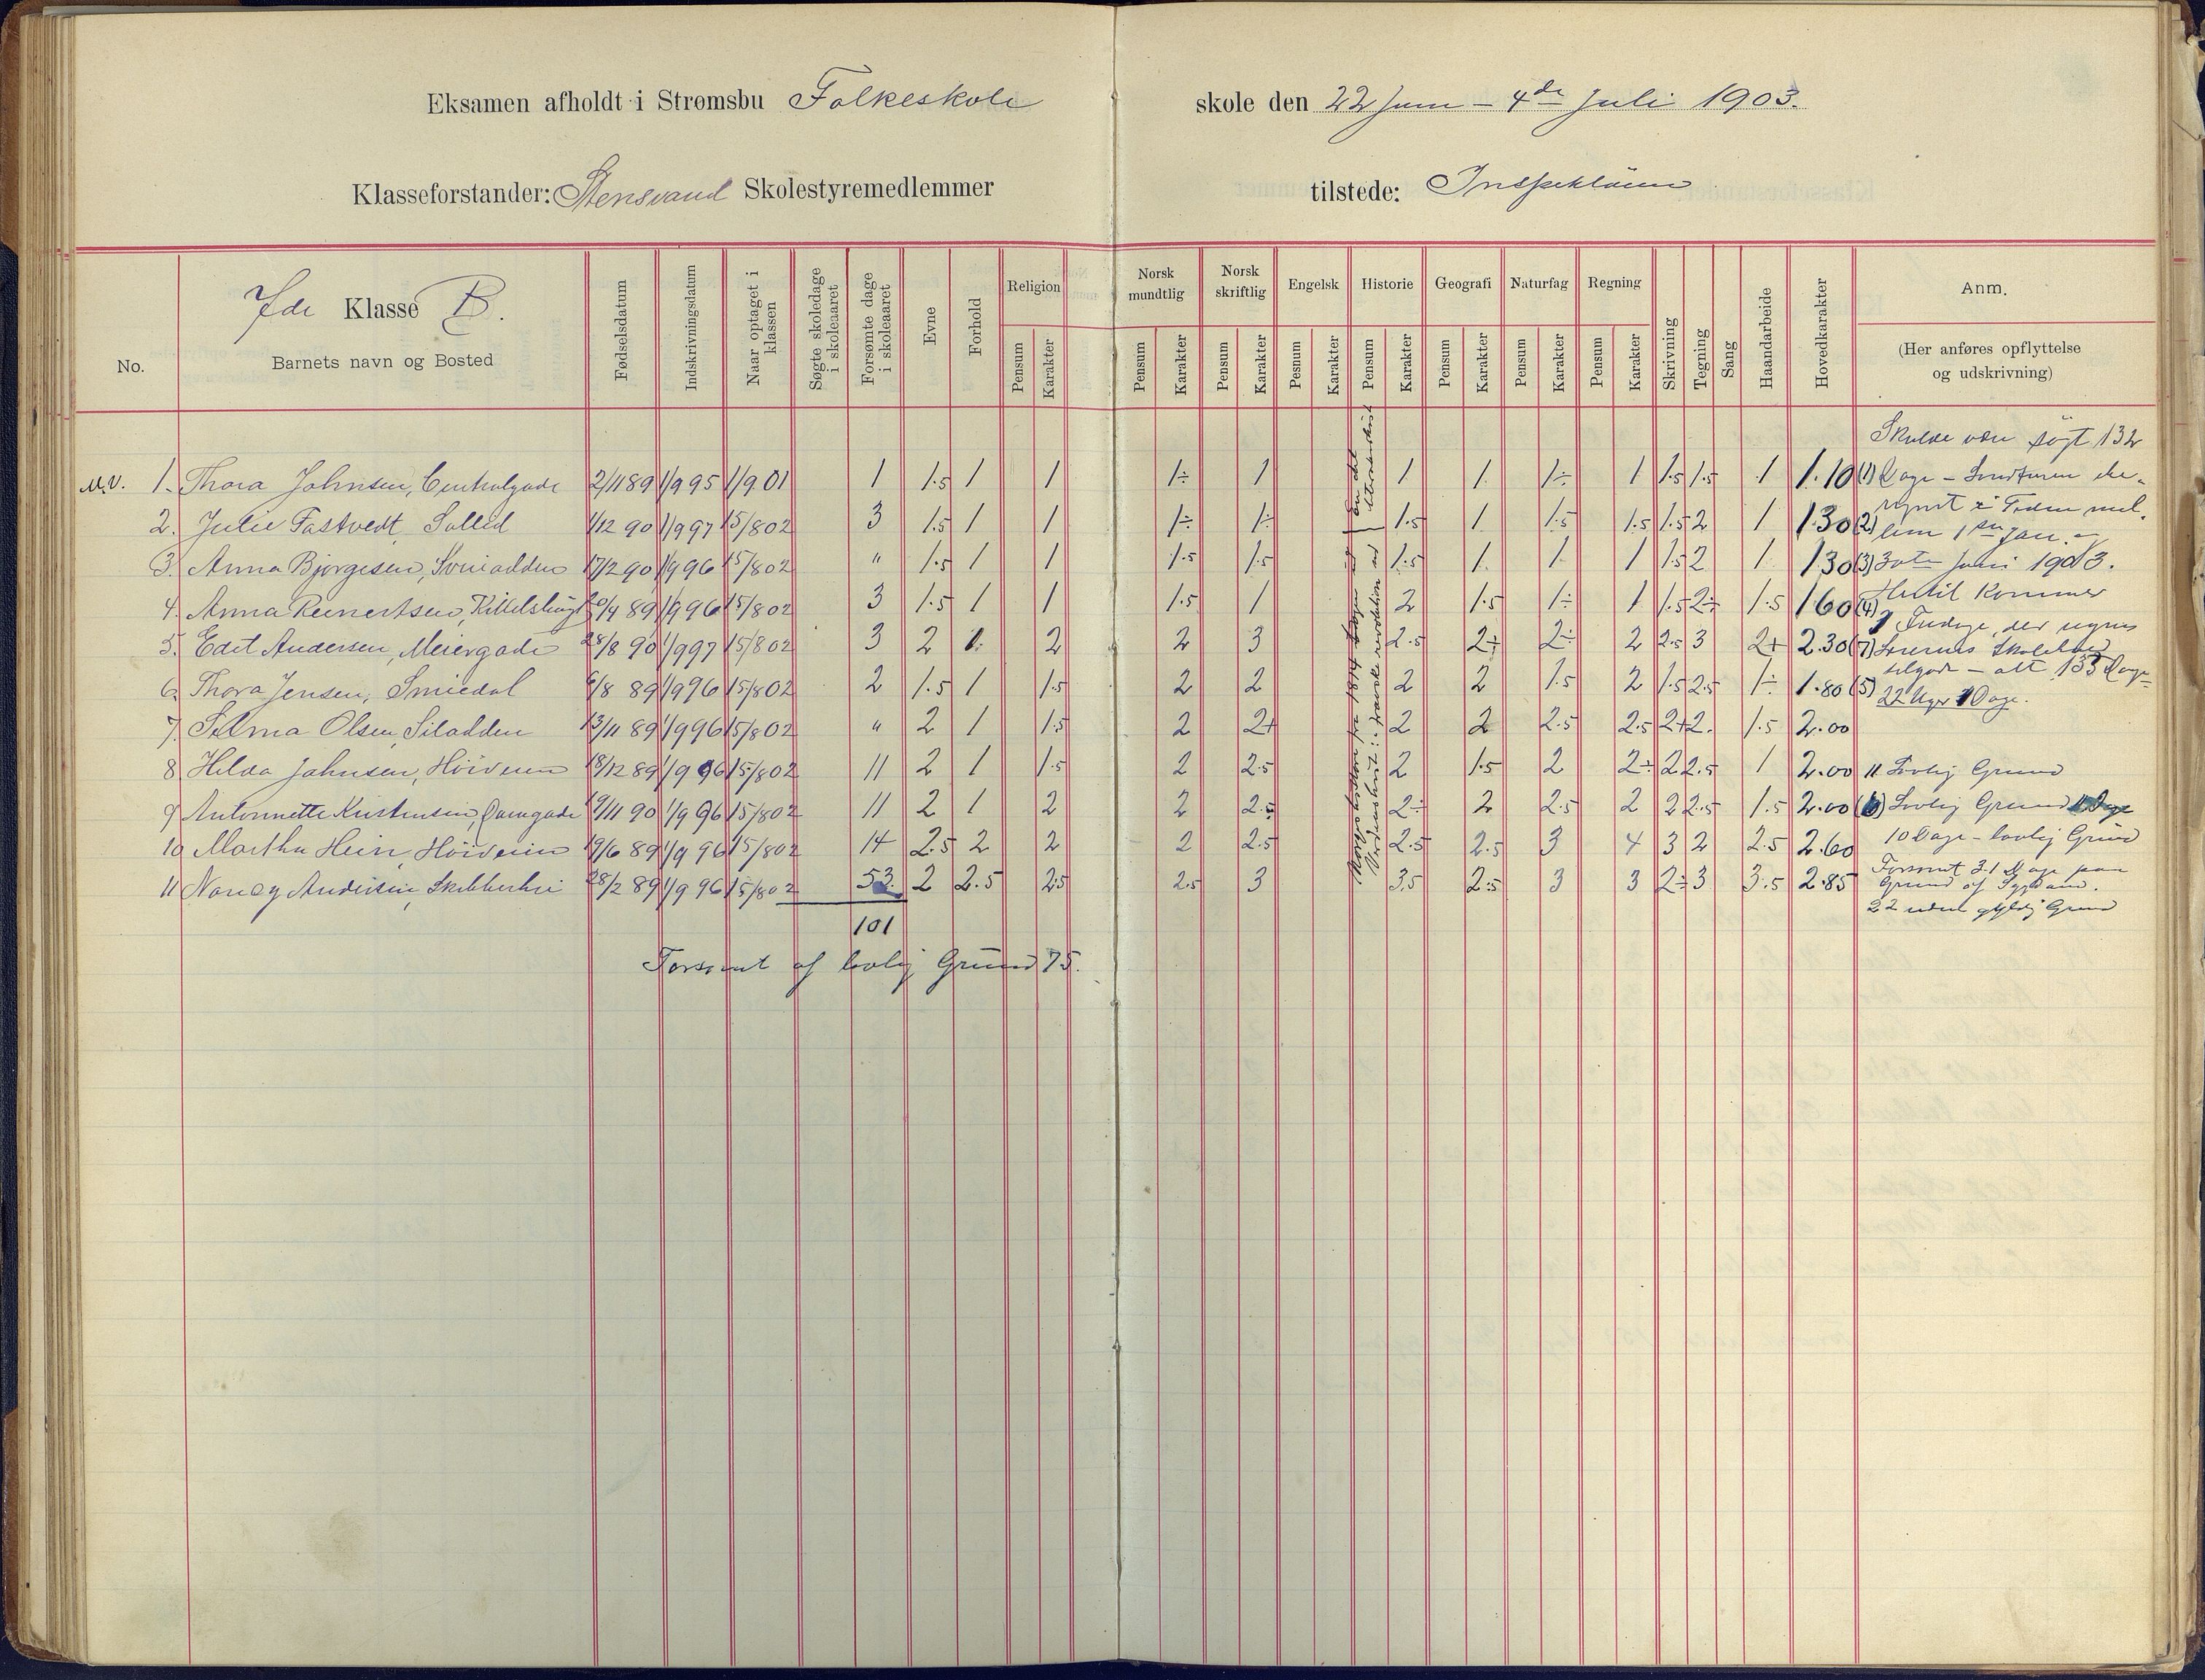 Eksamen afholdt i Strømsbu Folkeskole skole den 22 Juni – 4de Juli 1903.
Klasseforstander: Stensvand Skolestyremedlemmer tilstede:
7de Klasse B.
No. Barnets navn og Bosted Fødselsdatum Indskrivningsdatum Naar optaget i klassen Søgte skoledage i skoleaaret Forsømte dage i skoleaaret Evne Forhold Religion Norsk mundtlig Norsk skriftlig Engelsk Historie Geografi Naturfag Regning Skrivning Tegning Sang Haandarbeide Hovedkarakter Anm.
Pensum Karakter Pensum Karakter Pensum Karakter Pesmum Karakter Pensum Karakter Pensum Karakter Pensum Karakter Pensum Karakter (Her anføres opflyttelse og udskrivning)
Skulde være søgt 132
M.V. 1. Thora Johnsen, Centralgade 2/11 89 1/9 95 1/9 01 1 1.5 1 1 1÷ 1 1 1 1÷ 1 1.5 1.5 1 1.10 (1) Dage
2. Julie Fastvedt, 1/12 90 1/9 97 15/8 02 3 1.5 1 1 1÷ 1÷ 1.5 1 1.5 1.5 1.5 2 1 1.30 (2) lem 1ste Jan.
3. Anna Bjørgesen, 17/2 90 1/9 96 15/8 02 " 1.5 1 1 1.5 1.5 1.5 1 1 1 1.5 2 1 1.30 (3) 30te Juni 1903.
4. Anna Reinertsen, 1/9 96 15/8 02 3 1.5 1 1 1.5 1 2 1.5 1÷ 1 1.5 2÷ 1.5 1.60 (4) Hertil kommer
5. Edit Andersen, Meiergade 28/8 90 1/9 97 15/8 02 3 2 1 2 2 3 2.5 2÷ 2÷ 2 2.5 3 2+ 2.30 (7)
6. Thora Jensen, Smiedal 6/8 89 1/9 96 15/8 02 2 1.5 1 1.5 2 2 2 2 1.5 2 1.5 2.5 1÷ 1.80 (5) tilgode – alt 133 Dage =
22 Uger 1 Dage.
7. Selma Olsen, Silodden 13/11 89 1/9 96 15/8 02 " 2 1 1.5 2 2+ 2 2 2.5 2.5 2+ 2. 1.5 2.00
8. Hilda Johnsen, Høiveien 18/12 89 1/9 96 15/8 02 11 2 1 1.5 2 2.5 2 1.5 2 2÷ 2 2.5 1 2.00 11 Lovlig Grund
9 Antonnette Kristensen, 19/11 90 1/9 96 15/8 02 11 2 1 2 2 2.5 2÷ 2 2.5 2 2 2.5 1.5 2.00 (6) Lovlig Grund 11 Dage
10 Martha Hein, Høiveien 19/6 89 1/9 96 15/8 02 14 2.5 2 2 2 2.5 2.5 2.5 3 4 3 2 2.5 2.60 10 Dage – lovlig Grund
11 Nancy Andersen, 28/2 89 1/9 96 15/8 02 53 2 2.5 2.5 2.5 3 3.5 2.5 3 3 2÷ 3 3.5 2.85 Forsømt 31 Dage paa
Grund af Sygdom.
22 uden gyldig Grund
101
Forsømt af lovlig Grund 75.